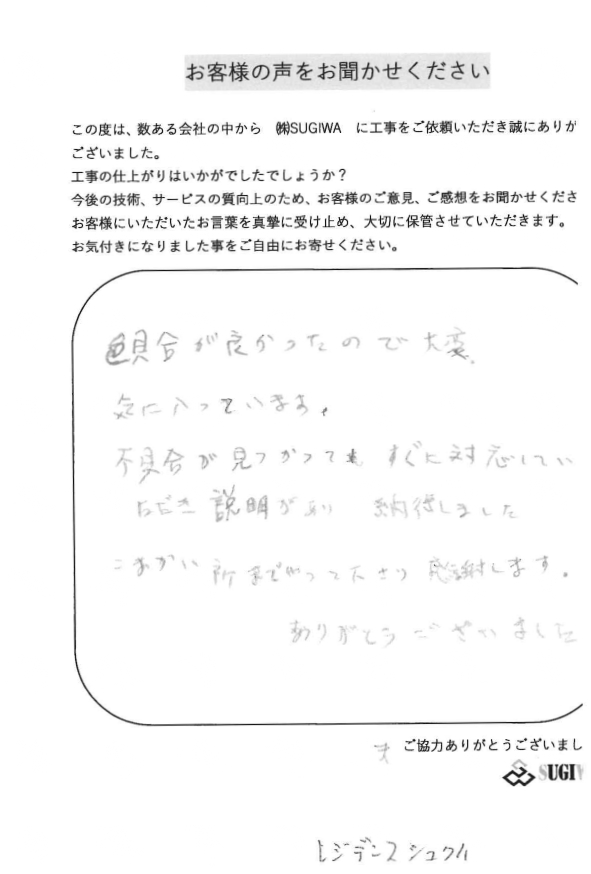 お客様の声をお聞かせください
この度は、数ある会社の中から ㈱SUGIWA に工事をご依頼いただき誠にありが
ございました。
工事の仕上がりはいかがでしたでしょうか？
今後の技術、サービスの質向上のため、お客様のご意見、ご感想をお聞かせくださ
お客様にいただいたお言葉を真摯に受け止め、大切に保管させていただきます。
お気付きになりました事をご自由にお寄せください。
色具合が良かったので大変
気に入っています。
不具合が見つかっても すぐに対応してい
ただき 説明があり 納得しました
こまかい 所までやって下さり 感謝します。
ありがとうございました
ご協力ありがとうございまし
SUGIW
レジデンスシュクル